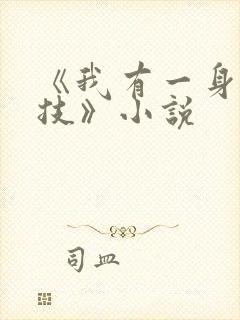 《我有一身
技》小說
司皿